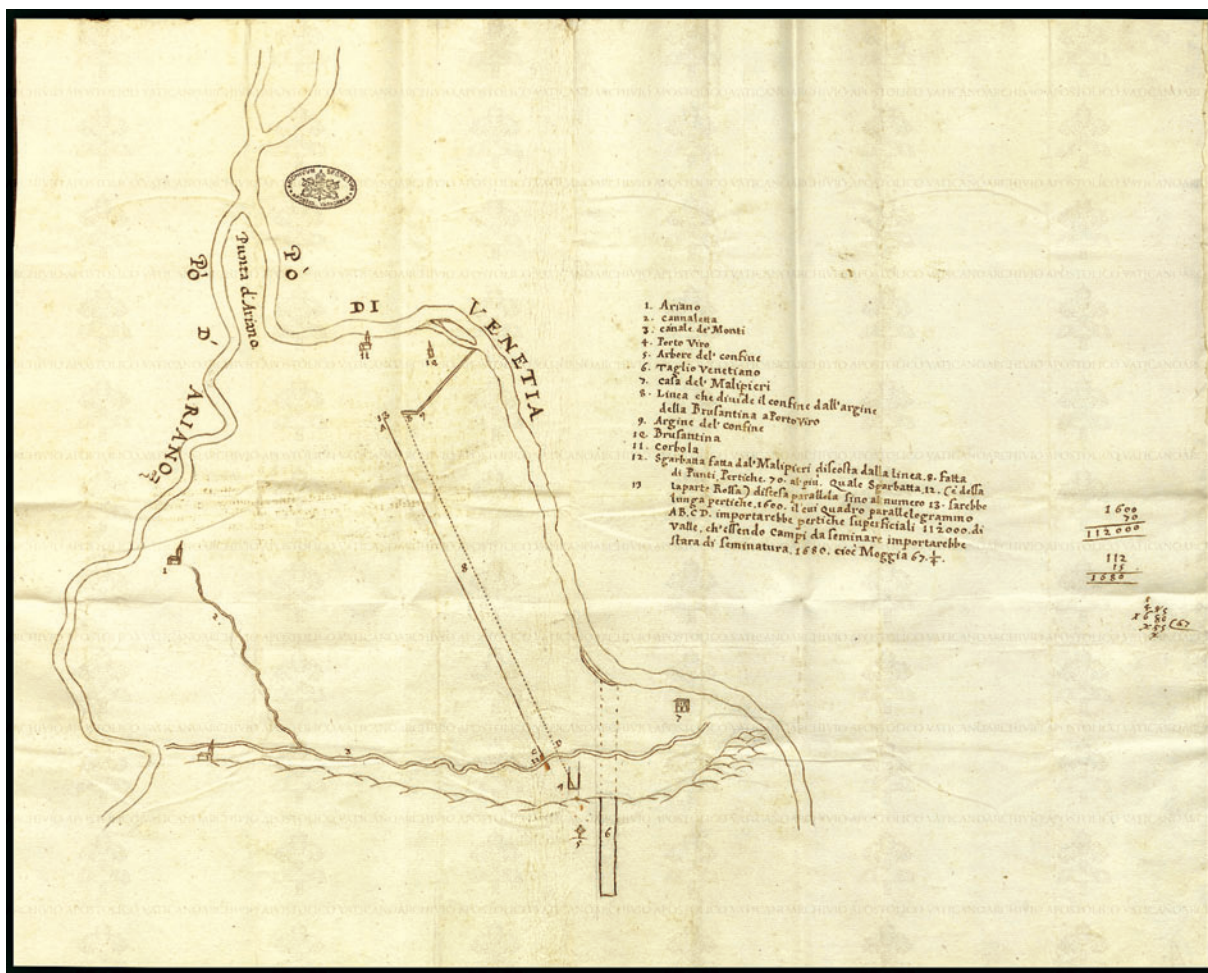 PÒ
PÒ
Punta d'Ariano
D'
ARIANO
DI
VENETIA
1. Ariano
2. Cannalena
3. Canale de' Monti
4. Porto Viro
5. Arbore del' confine
6. Taglio Venetiano
7. Casa del' Malipieri
8. Linea che divide il confine dall'argine
della Brusantina a Porto Viro
9. Argine del' confine
10. Brusantina
11. Corbola
12. Sgarbatta fatta dal' Malipieri discosta dalla linea. 8. fatta
di Punti, Pertiche. 70. al piu. Quale Sgarbatta. 12. (è della
13 taparte Rossa) distesa parallela sino al numero 13. sarebbe
lunga pertiche. 1600. il cui quadro parallelogrammo
AB, CD. importarebbe pertiche superficiali 112000. di
Valle, ch'essendo Campi da seminare importarebbe
stara di seminatura. 1680. cioè Moggia 67. 1/4.
1600
70
112000
112
15
1680
(67
11
10
12
A
9
8
1
2
3
7
C
13
D
4
5
6
ARCHIVIO APOSTOLICO VATICANO